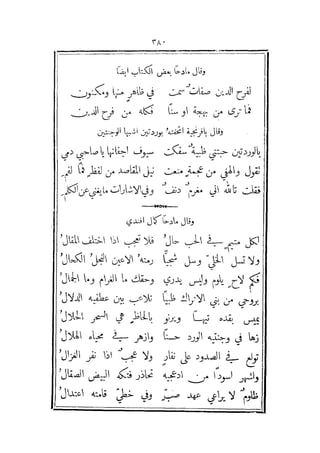 ٣٨٠
وقال مادحًا بعض الكتاب ايضًا
لفرح الدين صفات سمت في ظاهرٍ منها ومكنون
فما ترى من بهجة او سنًا فكله من فرح الدين
وقال بافرنجية اتحفته بوردتين اشبها الوجنتين
بالوردتين حبتني ظبيةٌ سفكت سيوف اجفانها يا صاحبي دمي
تقول والهفي من عجمة منعت نيل المقاصد من لفظٍ فما لفمِ
فقلت تالله اني مغرمٌ دنفٌ وفي الاشارات ما يغني عن الكلم
وقال مادحًا كمال افندي
لكل متيم في الحب حالُ فلا تعجب اذا اختلف المقالُ
ولا تسل الخلي وسل شجيًا رمته الاعين النجلُ الكحالُ
فكم لاحٍ يلوم وليس يدري وحقك ما الغرام وما الجمالُ
بروحي من بني الاتراك ظبيًا تلاعب بين عطفيه الدلالُ
يميس بقده تيهًا ويرنو بالحاظٍ هي السحر الحلالُ
زها في وجنتيه الورد حسنًا وازهر في محياه الهلالُ
تولع في الصدود على نفارٍ ولا عجبٌ اذا نفر الغزالُ
واشهر اسودًا من ادعجيه تحاذر فتكه البيض الصقالُ
ظلومٌ لا يراعي عهد صبٍّ وفي خطيّ قامته اعتدالُ